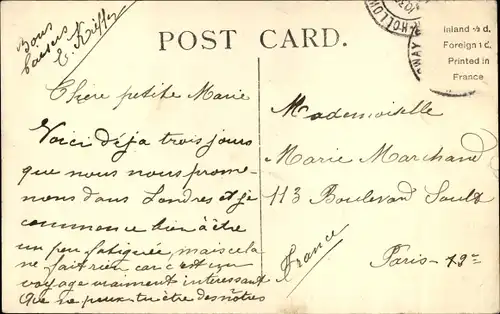 Bons
baisers
E. Kieffer
POST CARD.
HOLLOWAY
Inland ½d.
Foreign 1d.
Printed in
France
Chère petite Marie
Voici déja trois jours
que nous nous prome-
nons dans Londres et je
commence bien à être
un peu fatiguée, mais cela
ne fait rien car c'est un
voyage vraiment interessant
Que ne peux-tu être des nôtres
Mademoiselle
Marie Marchand
113 Boulevard Soult
Paris - 12e
France